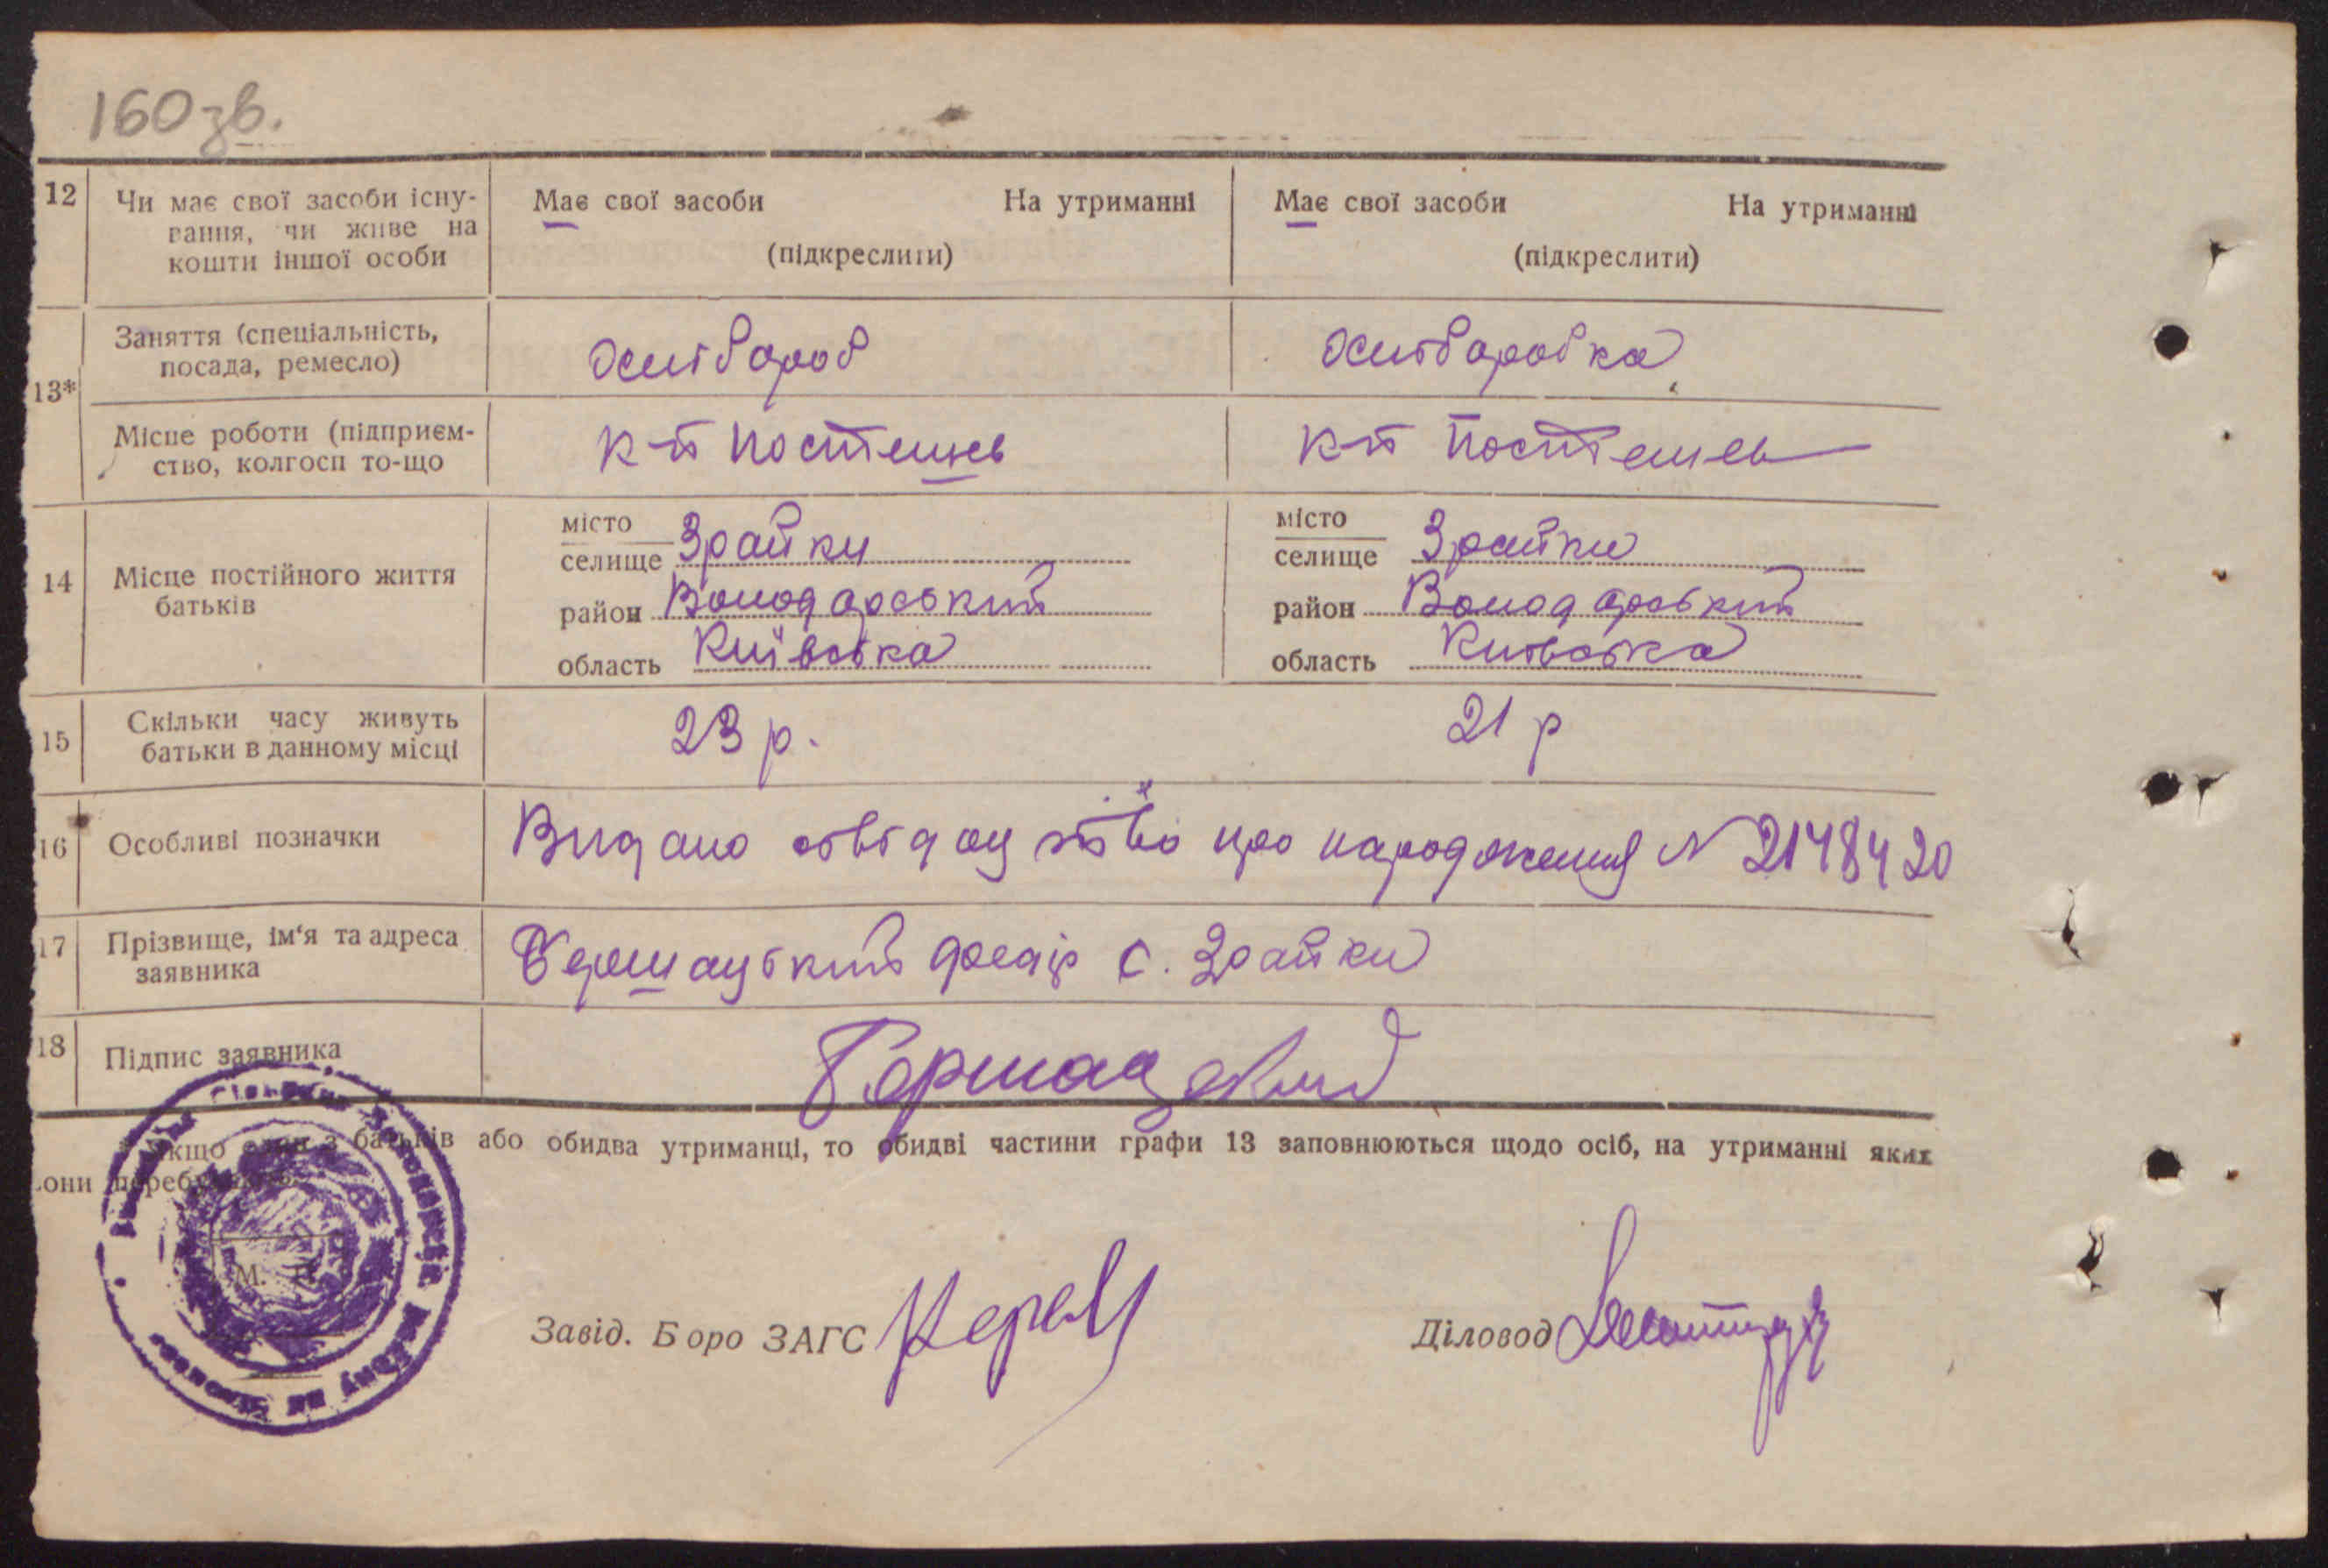 160 зв.
12 Чи має свої засоби існу- Має свої засоби На утриманні Має свої засоби На утриманні
вання, чи живе на
кошти іншої особи (підкреслити) (підкреслити)
13* Заняття (спеціальність,
посада, ремесло)
Місце роботи (підприєм- к-п Постишев к-п Постишев
ство, колгосп то-що
14 Місце постійного життя батьків
місто
селище Зрайки
район Володарський
область Київська
місто
селище Зрайки
район Володарський
область Київська
15 Скільки часу живуть 23 р. 21 р
батьки в данному місці
16 Особливі позначки Видано свідоцтво про народження N 2148420
17 Прізвище, ім'я та адреса с. Зрайки
заявника
18 Підпис заявника
якщо один з батьків або обидва утриманці, то обидві частини графи 13 заповнюються щодо осіб, на утриманні яких
вони перебувають.
М. П.
Завід. Бюро ЗАГС
Діловод